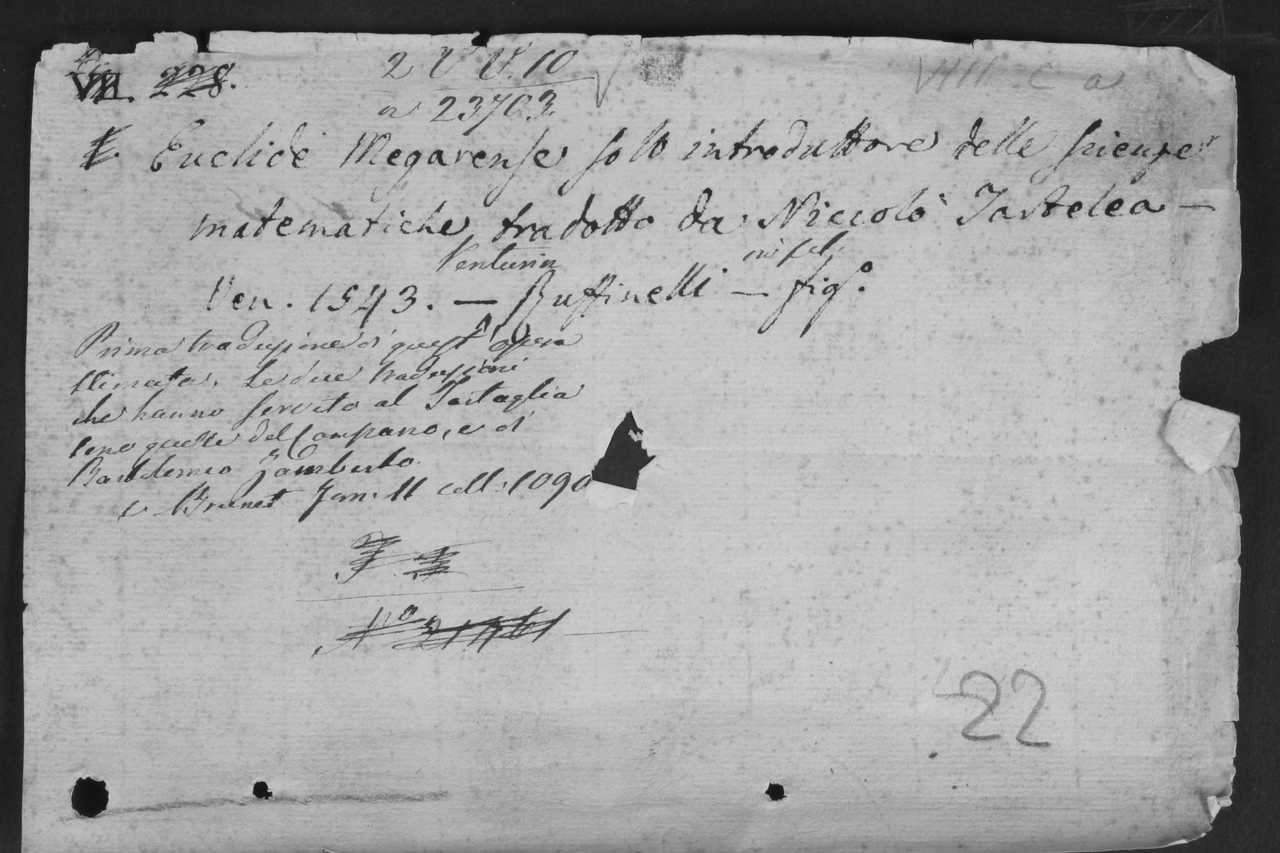 VII. 228.
2 V V. 10
a 23703
VIII C a
E Euclide Megarense solo introduttore delle scienze
matematiche tradotto da Niccolò Tastelea —
Venturin in fol.
Ven. 1543. — Ruffinelli — fig.
Prima traduzione di quest' opera
stimata. Le due traduzioni
che hanno servito al Tartaglia
sono quelle del Campano, e di
Bartolomeo Zamberto.
v. Brunet Tom. II coll. 1090
N.o
22